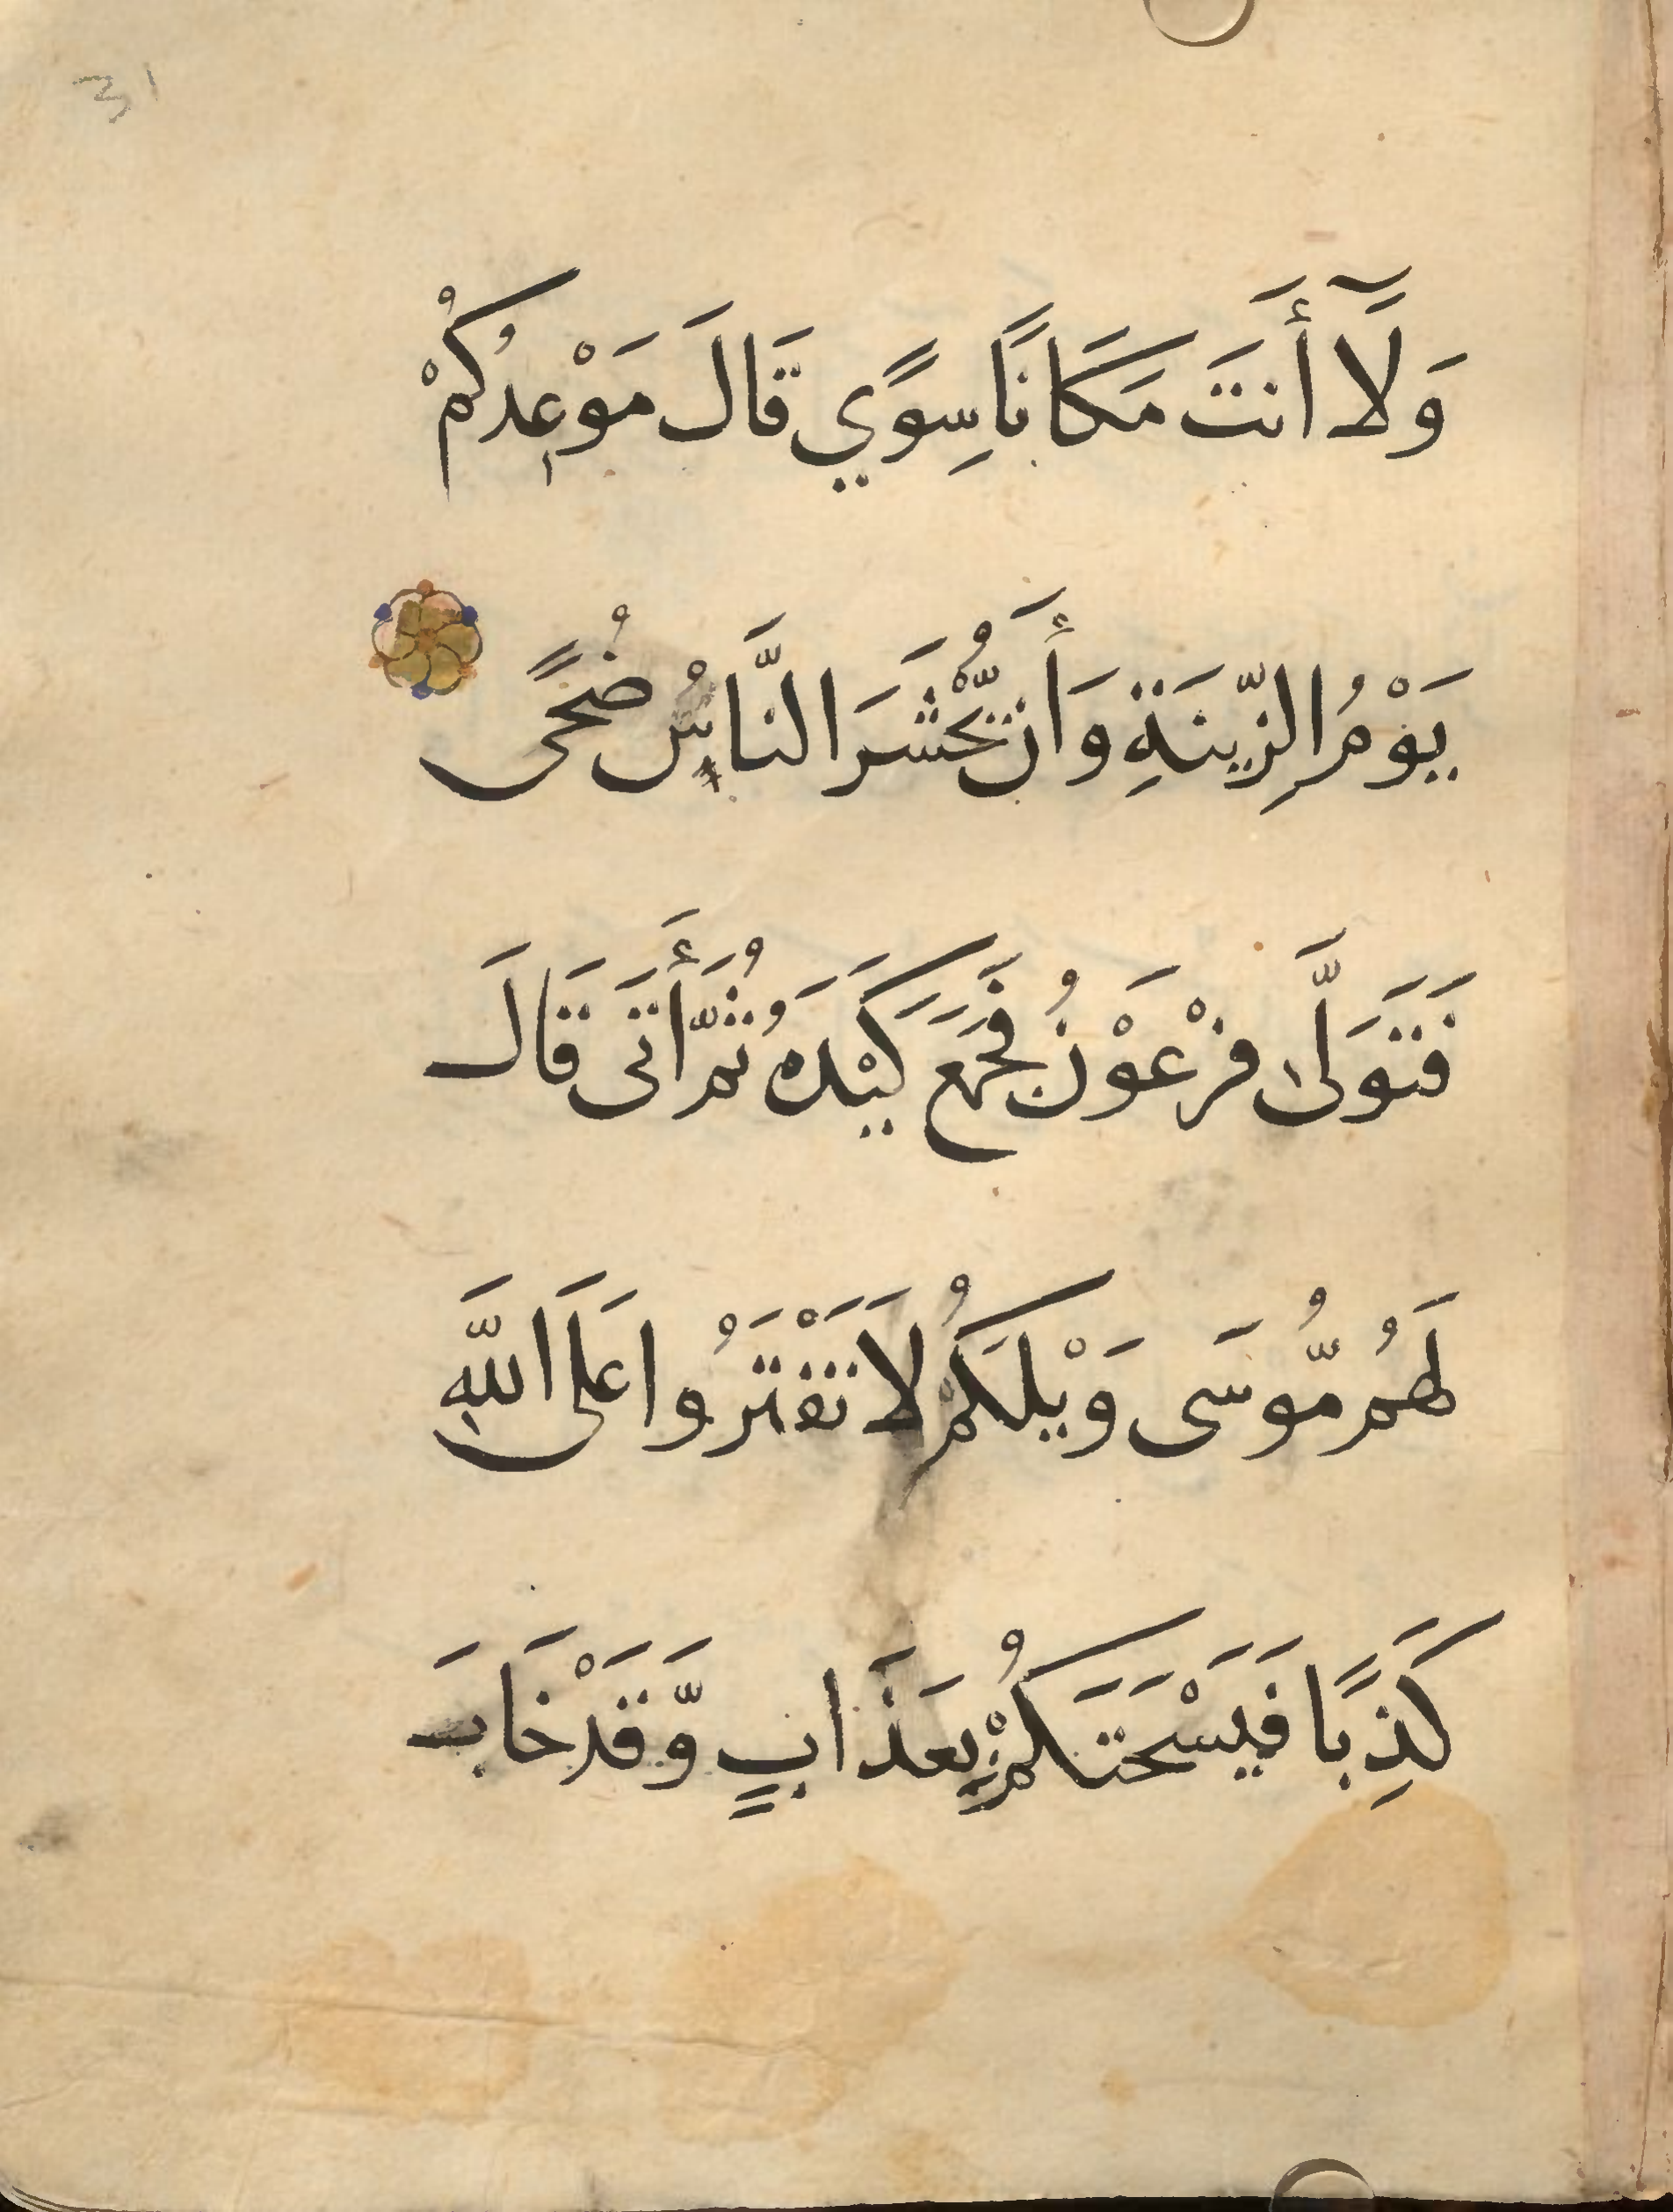 31
وَلَآ أَنتَ مَكَانًا سِوًي قَالَ مَوْعِدُكُمْ
يَوْمُ الزِّينَةِ وَأَن يُّحْشَرَ النَّاسُ ضُحًى
فَتَوَلَّى فِرْعَوْنُ فَجَمَعَ كَيْدَهُ ثُمَّ أَتَى قَالَ
لَهُم مُّوسَى وَيْلَكُمْ لَا تَفْتَرُوا عَلَى اللَّهِ
كَذِبًا فَيَسْحَتَكُمْ بِعَذَابٍ وَّقَدْ خَابَ